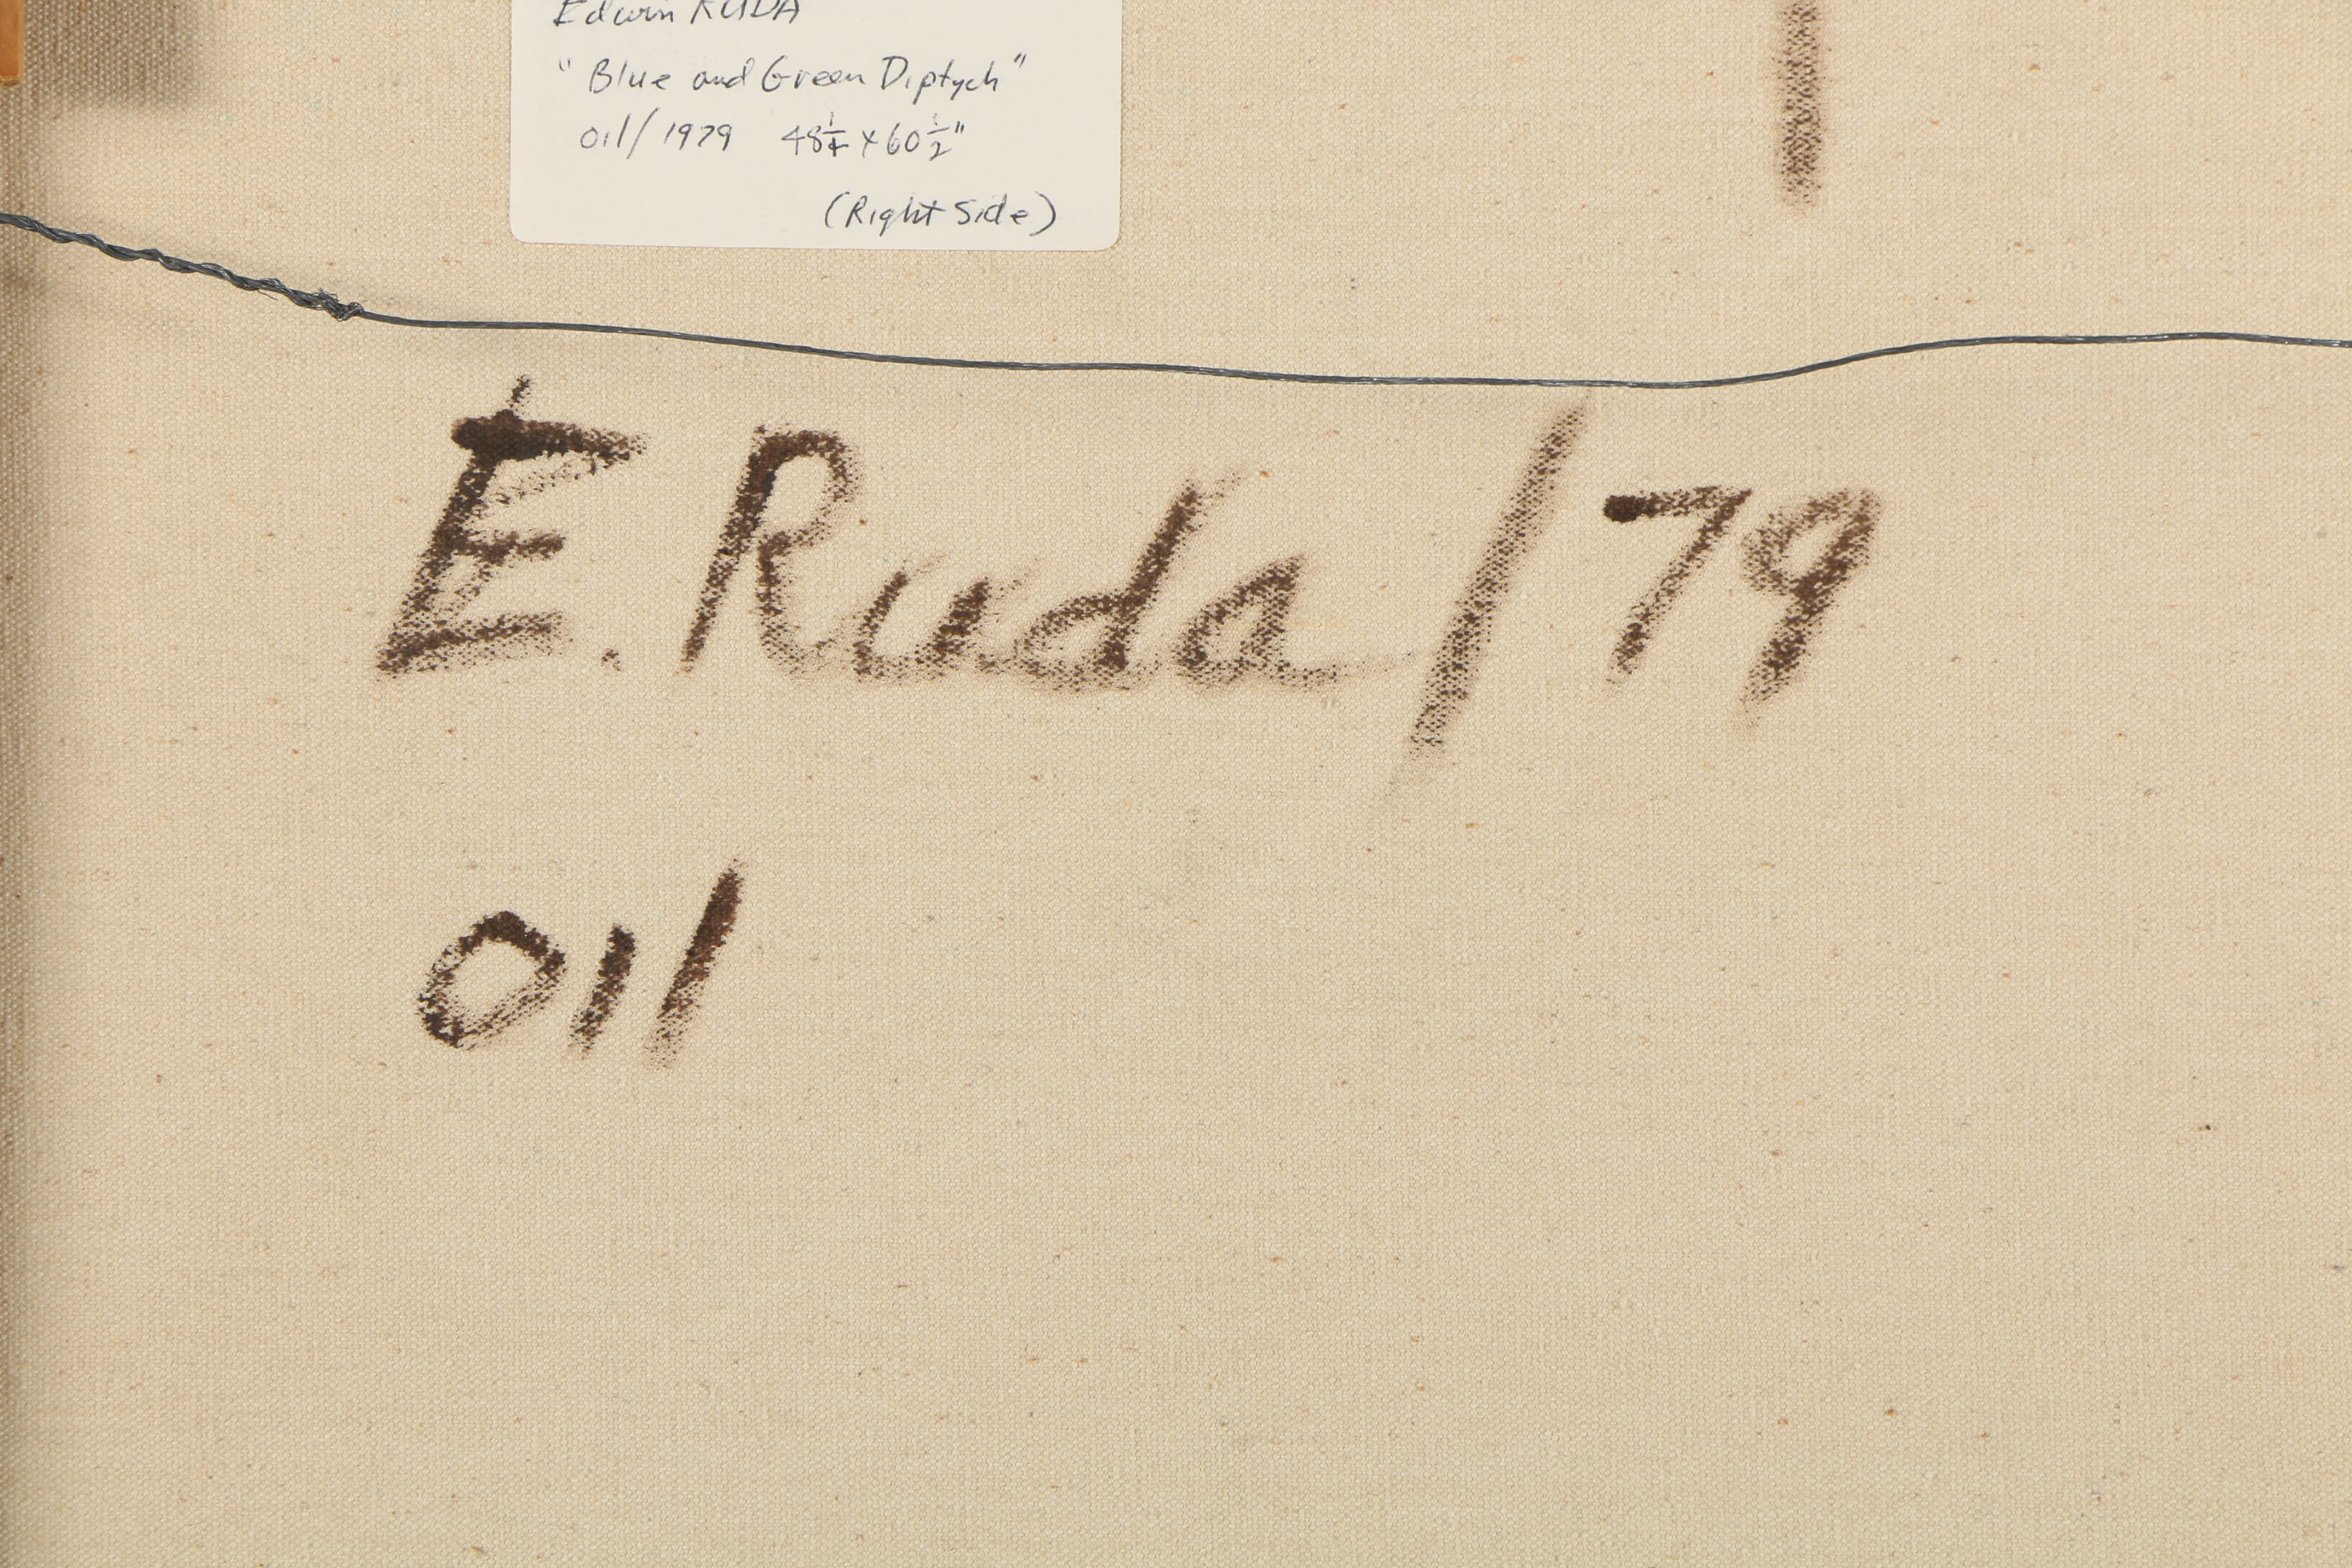 Edwin RUDA
"Blue and Green Diptych"
oil/1979 48¼ x 60½"
(Right Side)
E. Ruda / 79
oil